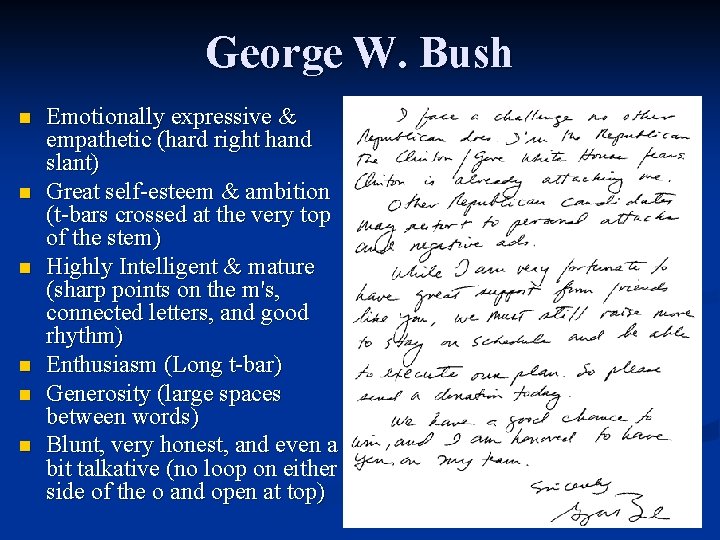 George W. Bush
Emotionally expressive &
empathetic (hard right hand
slant)
Great self-esteem & ambition
(t-bars crossed at the very top
of the stem)
Highly Intelligent & mature
(sharp points on the m's,
connected letters, and good
rhythm)
Enthusiasm (Long t-bar)
Generosity (large spaces
between words)
Blunt, very honest, and even a
bit talkative (no loop on either
side of the o and open at top)
I face a challenge no other
Republican does. I'm the Republican
the Clinton/Gore White House fears.
Clinton is already attacking me.
Other Republican candidates
may resort to personal attacks
and negative ads.
While I am very fortunate to
have great support from friends
like you, we must still raise more
to stay on schedule and be able
to execute our plan. So please
send a donation today.
We have a good chance to
win, and I am honored to have
you on my team.
Sincerely